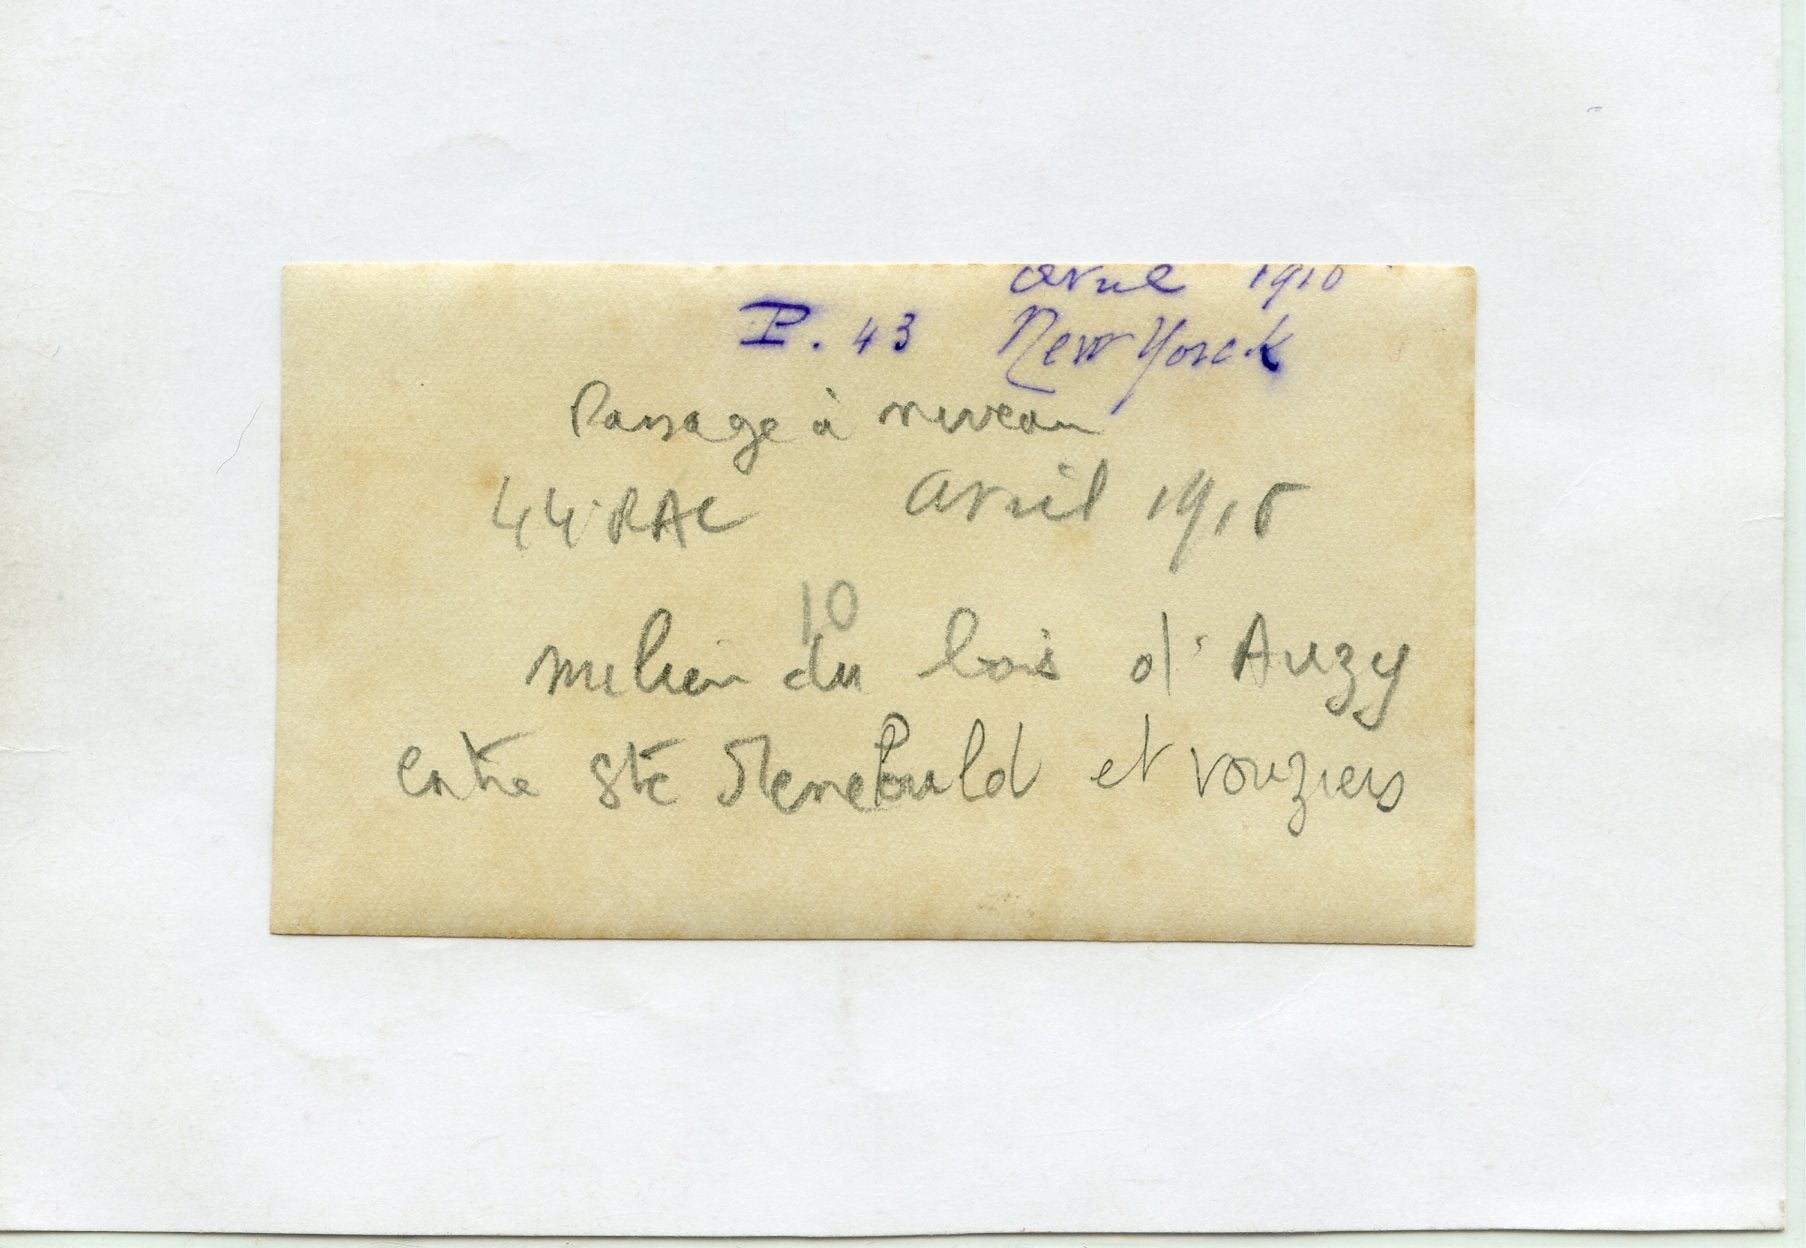 avril 1918
P. 43 New Yorck
Passage à niveau
44 RAC avril 1918
10
milieu du bois d'Auzy
entre Ste Menehould et Vouziers